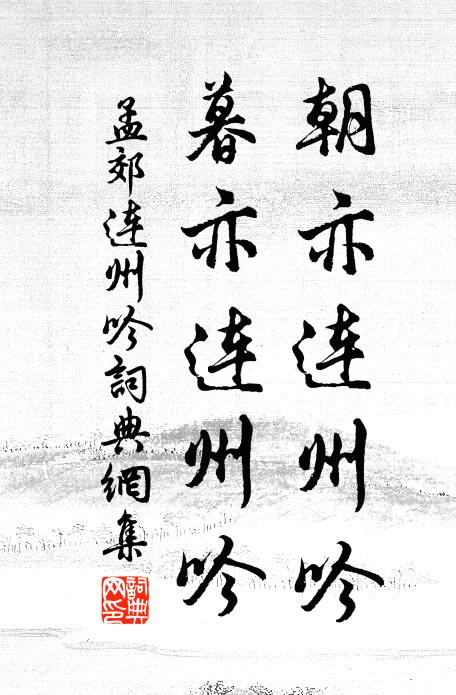 朝亦連州吟
暮亦連州吟
孟郊連州吟詞典網集
詞典
网印